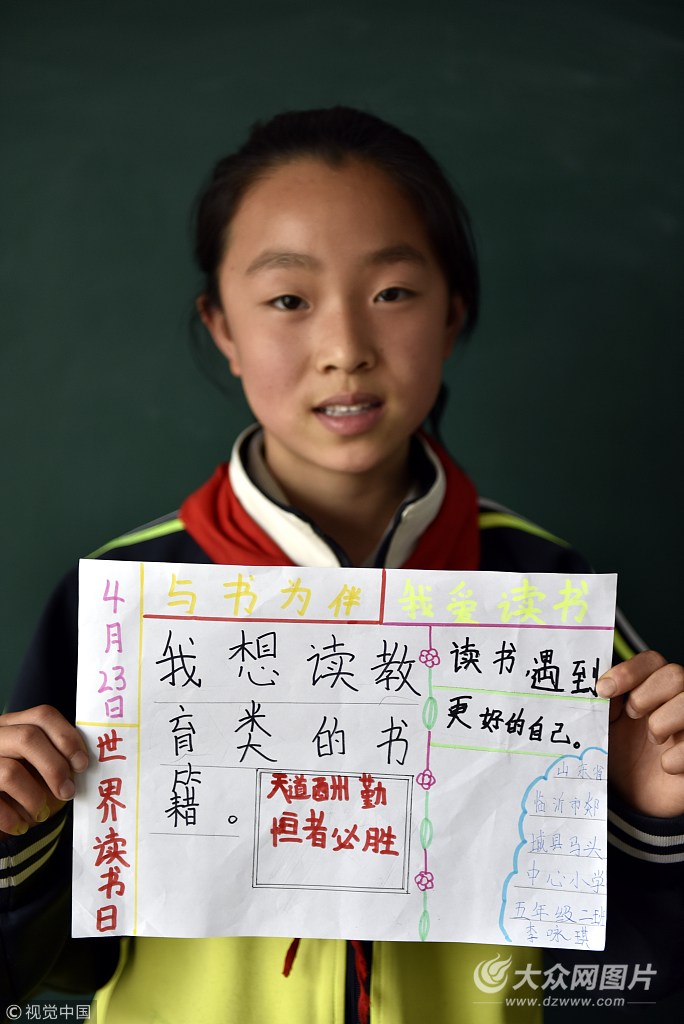 4月23日
世界读书日
与书为伴
我爱读书
我想读教
育类的书
籍。
天道酬勤
恒者必胜
读书遇到
更好的自己。
山东省
临沂市郯
城县马头
中心小学
五年级二班
李咏琪
大众网图片
www.dzwww.com
©视觉中国